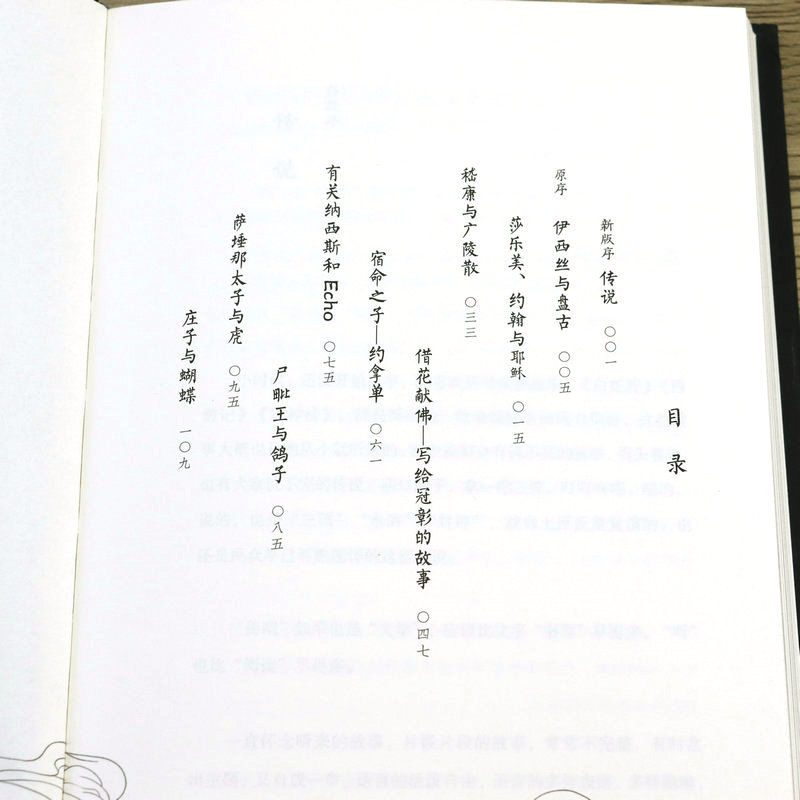 目录
新版序 传说 〇〇一
原序 伊西丝与盘古 〇〇五
莎乐美、约翰与耶稣 〇一五
嵇康与广陵散 〇三三
借花献佛——写给冠彰的故事 〇四七
宿命之子——约拿单 〇六一
有关纳西斯和 Echo 〇七五
尸毗王与鸽子 〇八五
萨埵那太子与虎 〇九五
庄子与蝴蝶 一〇九